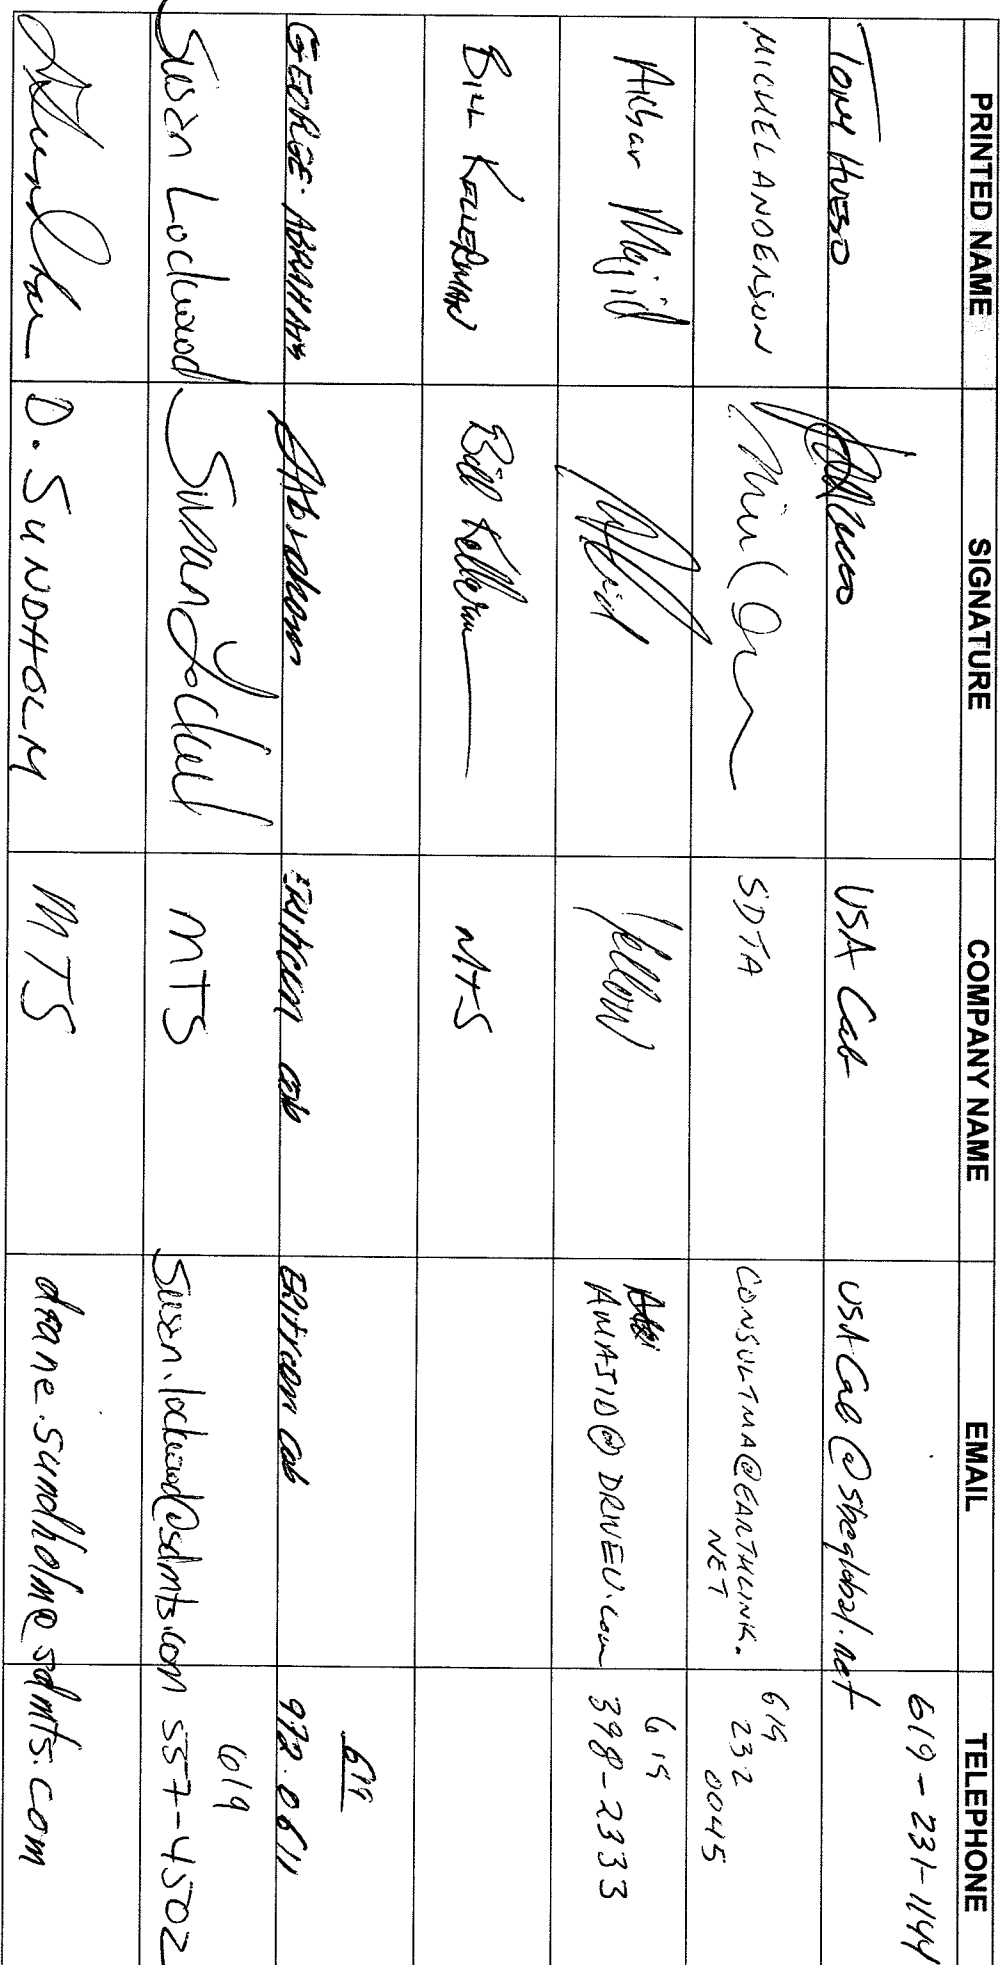 PRINTED NAME SIGNATURE COMPANY NAME EMAIL TELEPHONE
TONY HUESO USA Cab USACab@sbcglobal.net 619-231-1144
MICHEL ANDERSON SDTA CONSULTMA@EARTHLINK. 619
NET 232
0045
Akbar Majid Yellow AMAJID@DRIVEU.com 619
398-2333
BILL KELLERMAN Bill Kellerman MTS
GEORGE ABRAHAM Abraham ERITREAN cab ERITREAN Cab 619
972.0611
Susan Lockwood Susan Lockwood MTS Susan.lockwood@sdmts.com 619
557-4502
D. SUNDHOLM MTS diane.sundholm@sdmts.com